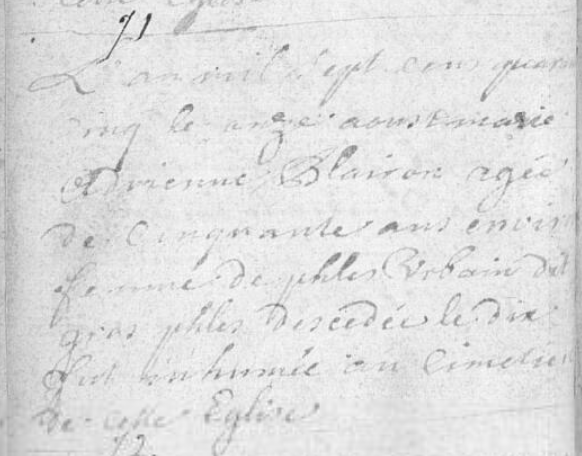 cette Eglise
71
L'an mil sept cens quaran
cinq le onze aoust marie
Adrienne Blairon agée
de Cinquante ans environ
femme de phles Urbain dit
gros phles descedée le dix
fut inhumée au Cimetie
de cette Eglise
72